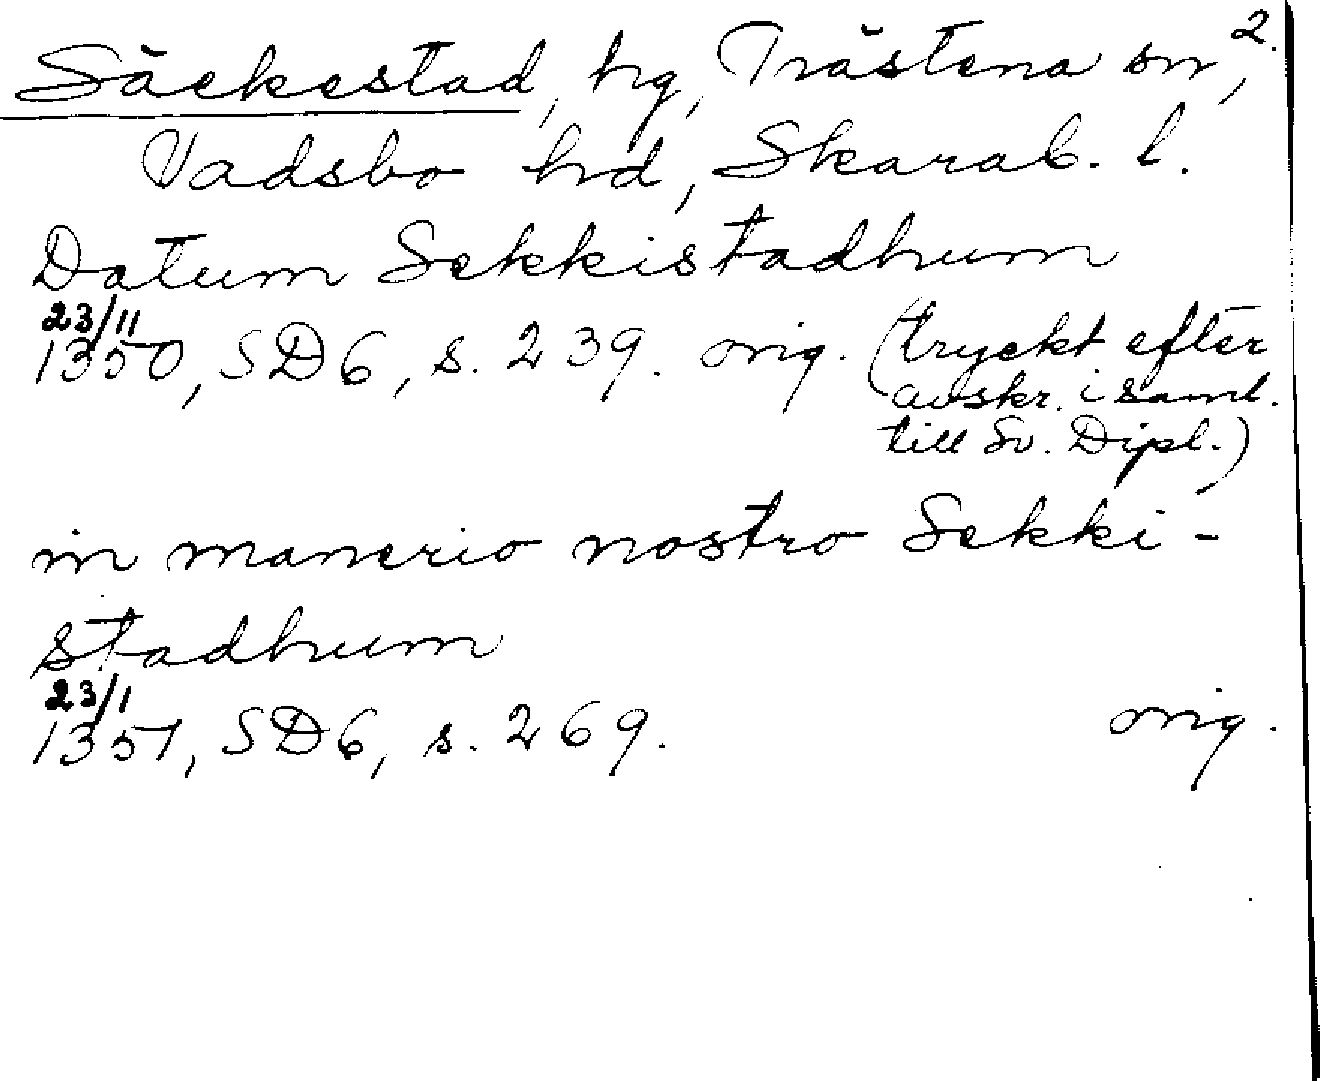 2.
Säckestad, hg, Trästena sn,
Vadsbo hd, Skarab. l.
Datum Sekkistadhum
23/11
1350, SD6, s. 239. orig. (tryckt efter
avskr. i saml.
till Sv. Dipl.)
in manerio nostro Sekki-
stadhum
23/1
1351, SD6, s. 269. orig.